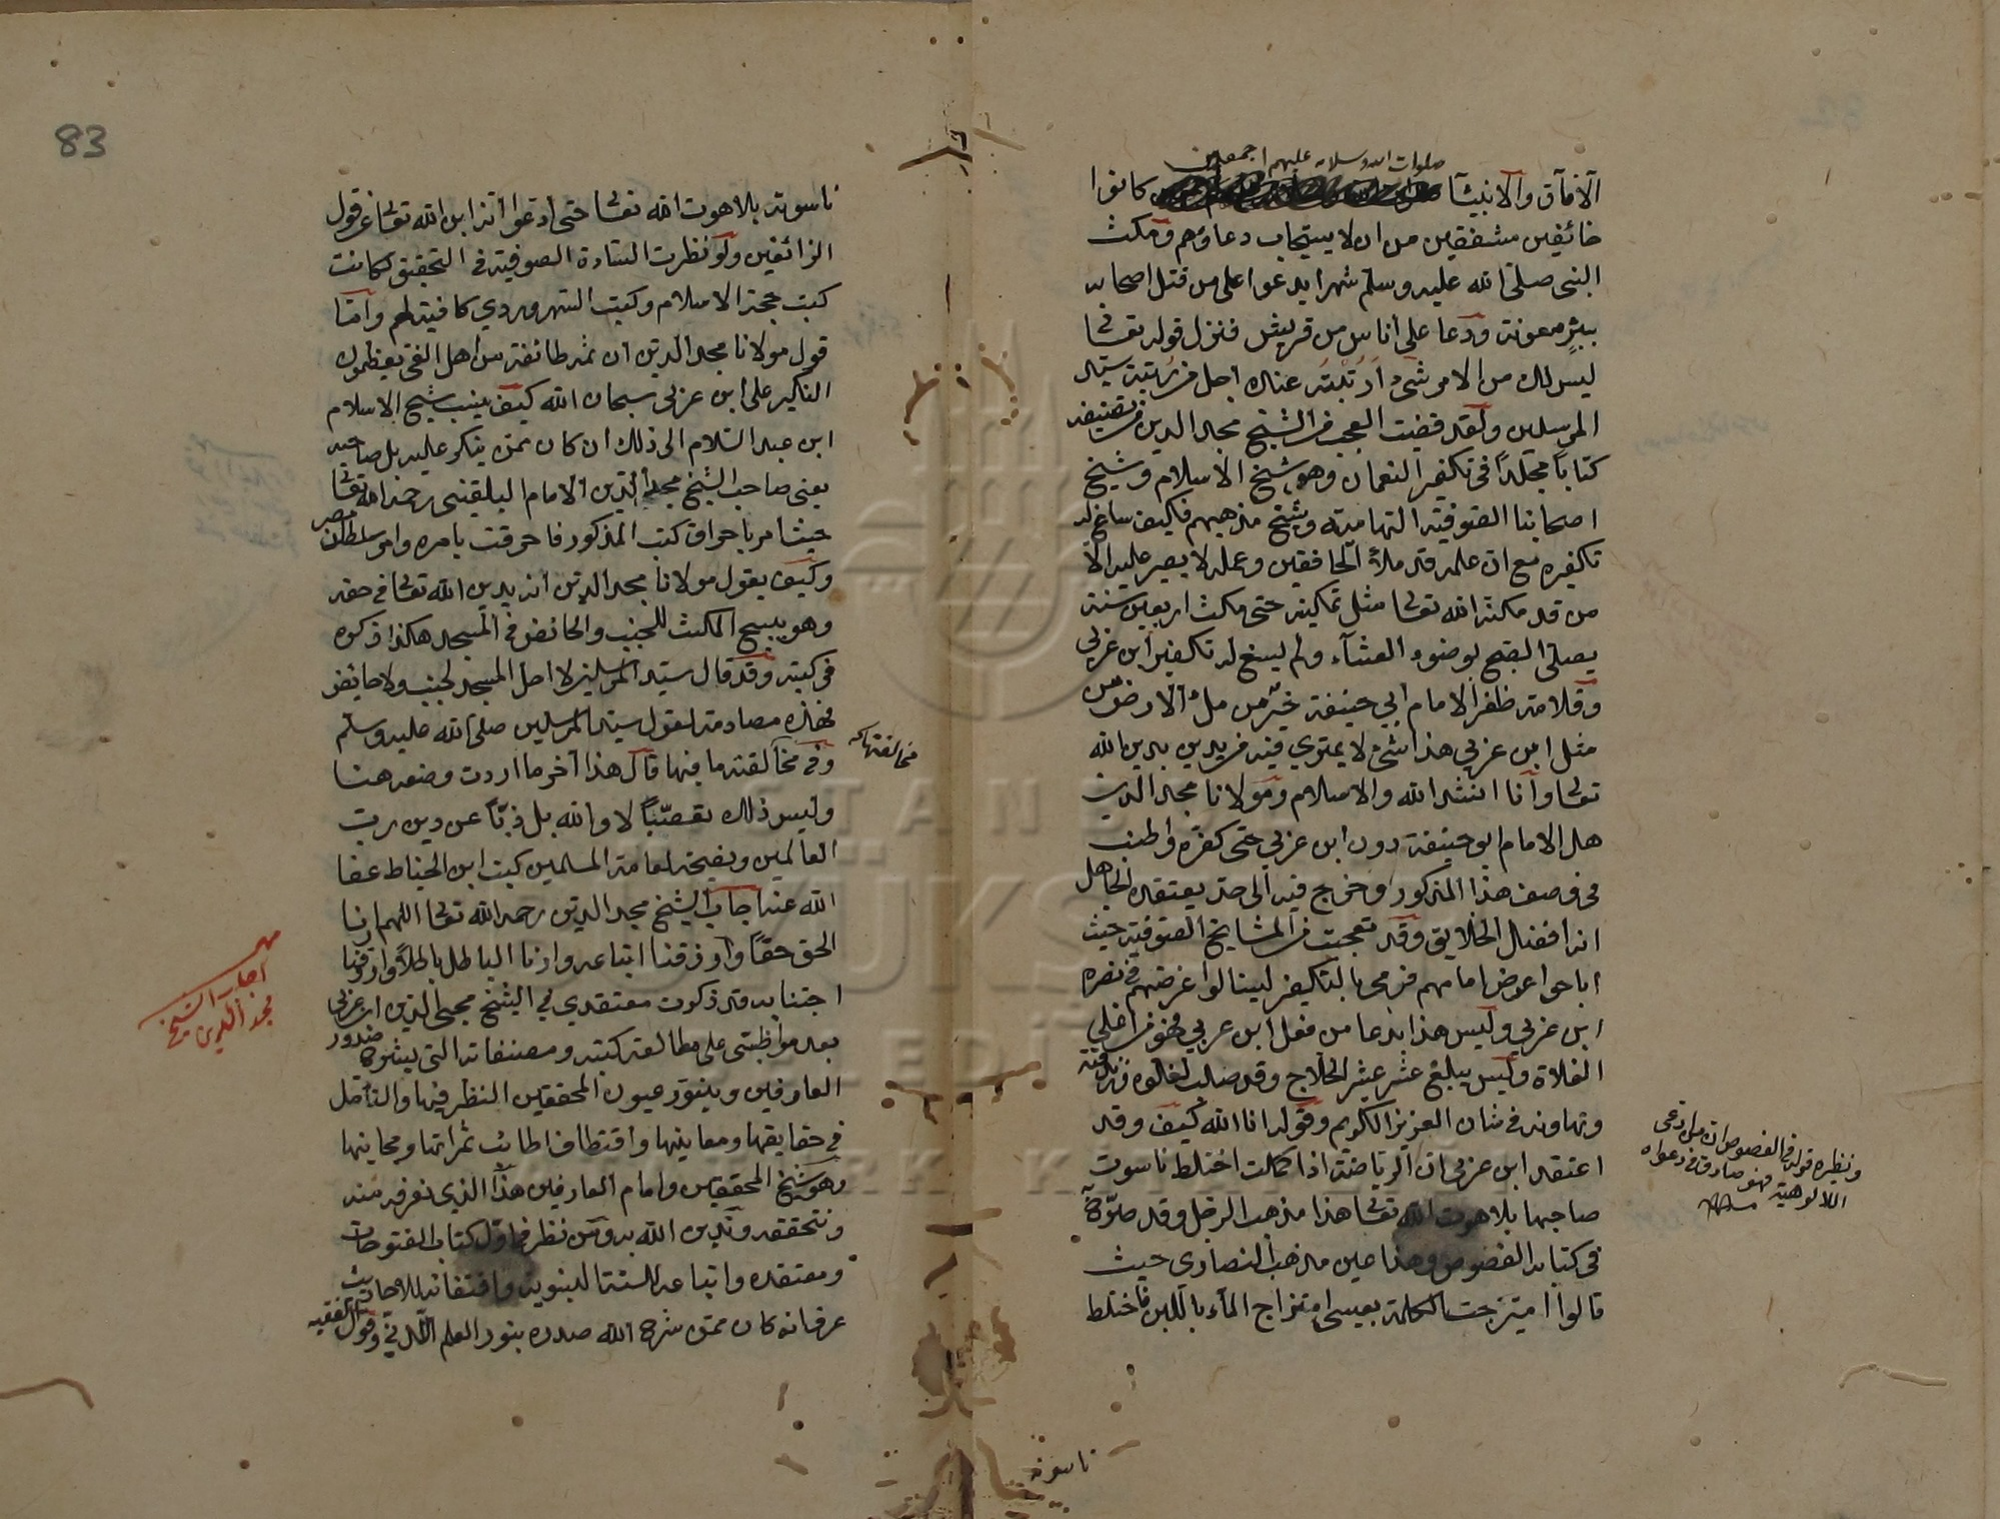 صلوات الله وسلامه عليهم اجمعين
الآفاق والانبيآ كانوا
خائفين مشفقين من ان لا يستجاب دعاؤهم ومكث
النبى صلى الله عليه وسلم شهرا يدعوا على من قتل اصحابه
ببئر معونة ودعا على أناس من قريش فنزل قوله تعالى
ليس لك من الامر شئ
المرسلين ولقد قضيت العجب من الشيخ مجد الدين فى تصنيفه
كتابا مجلدا فى تكفير النعمان وهو شيخ الاسلام وشيخ
اصحابنا الصوفية التهامية وشيخ مذهبهم فكيف ساغ له
تكفيره مع ان علمه قد ملأ الخافقين وعمله لا يصبر عليه الا
من قد مكنه الله تعالى مثل تمكينه حتى مكث اربعين سنة
يصلى الصبح بوضوء العشآء ولم يسغ له تكفير ابن عربي
وقلامة ظفر الامام ابي حنيفة خير من ملء الارض من
مثل ابن عربي هذا شئ لا يمترى فيه من يدين بدين الله
تعالى وأنا انشد الله والاسلام ومولانا مجد الدين
هل الامام ابو حنيفة دون ابن عربي حتى كفره واطنب
فى وصف هذا المذكور وخرج فيه الى حد يعتقده الجاهل
انه افضل الخلايق وقد تعجبت من المشايخ الصوفية حيث
اباحوا عرض امامهم فرمى بالتكفير لينالوا غرضهم فى نصره
ابن عربي وليس هذا بدعا من فعل ابن عربي فهو من اغلى
الغلاة وليس يبلغ عشر عشر الحلاج وقد صلب لغلوه وزندقته
وتهاونه فى شان العزيز الكريم وقوله انا الله كيف وقد
اعتقد ابن عربي ان الرياضة اذا كملت اختلط ناسوت
صاحبها بلاهوت الله تعالى هذا مذهب الرجل وقد صرح به
فى كتابه الفصوص وهذا عين مذهب النصارى حيث
قالوا امتزجت الكلمة بعيسى امتزاج المآء باللبن فاختلط
ونظيره قوله فى الفصوص ان من ادعى
الالوهية فهو صادق فى دعواه
ناسوته
83
ناسوته بلاهوت الله تعالى حتى أدعوا أنه ابن الله تعالى عن قول
الزائغين ولو نظرت السادة الصوفية فى التحقيق لكانت
كتب حجة الاسلام وكتب السهروردي كافية لهم وأما
قول مولانا مجد الدين ان ثمه طائفة من اهل الغى يعظمون
النكير على ابن عربى سبحان الله كيف ينسب شيخ الاسلام
ابن عبد السلام الى ذلك ان كان ممن ينكر عليه بل صاحبه
يعنى صاحب الشيخ مجد الدين الامام البلقينى رحمه الله تعالى
حيث امر باحراق كتب المذكور فاحرقت بامره وامر سلطان مصر
وكيف يقول مولانا مجد الدين أنه يدين الله تعالى فى حقه
وهو يبيح المكث للجنب والحائض فى المسجد هكذا ذكره
فى كتبه وقد قال سيد المرسلين لا احل المسجد لجنب ولا حايض
فهذه مصادمة لقول سيد المرسلين صلى الله عليه وسلم
وفى مخالفته ما فيها قال هذا آخر ما اردت وضعه هنا
مخالفتها
وليس ذلك تعصبا لا والله بل ذبا عن دين رب
العالمين ونصيحة لعامة المسلمين كتبه ابن الخياط عفا
الله عنه اجاب الشيخ مجد الدين رحمه الله تعالى اللهم ارنا
الحق حقا وارزقنا اتباعه وارنا الباطل باطلا وارزقنا
اجتنابه قد ذكرت معتقدي في الشيخ محيى الدين ابن عربي
بعد مواظبتى على مطالعة كتبه ومصنفاته التى يشرح صدور
العارفين وينور عيون المحققين النظر فيها والتأمل
فى حقايقها ومعاينها واقتطاف اطائب ثمراتها ومجانيها
وهو شيخ المحققين وامام العارفين هذا الذي نعرفه منه
ونتحققه وندين الله به ومن نظر فى اول كتاب الفتوحات
ومعتقده واتباعه للسنة النبوية واقتفائه للاحاديث
عرف انه كان ممن شرح الله صدره بنور العلم اللدني وقول الفقيه
اجاب الشيخ
مجد الدين